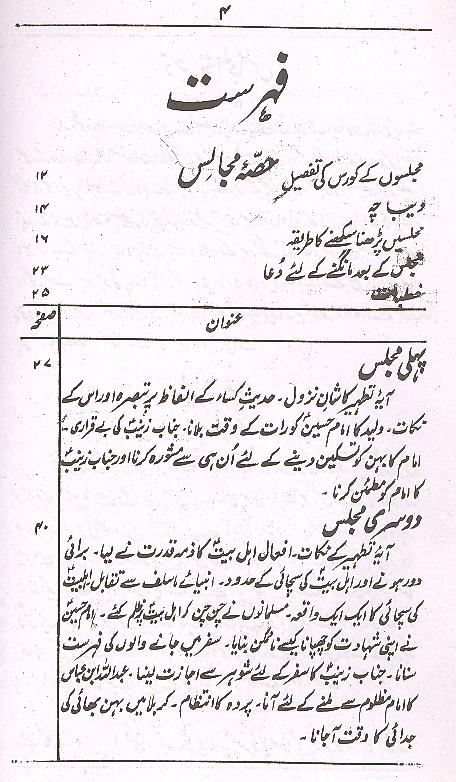 ۴
فہرست
حصّۂ مجالس
مجلسوں کے کورس کی تفصیل ۱۲
دیباچہ ۱۴
مجلسیں پڑھنا سیکھنے کا طریقہ ۱۶
مجلس کے بعد مانگنے کے لئے دُعا ۲۳
خطبات ۲۵
عنوان صفحہ
پہلی مجلس ۲۷
آیۂ تطہیر کا شانِ نزول۔ حدیثِ کساء کے الفاظ پر تبصرہ اور اس کے
نکات۔ ولید کا امام حسینؑ کو رات کے وقت بلانا۔ جناب زینبؑ کی بے قراری۔
امامؑ کا بہن کو تسکین دینے کے لئے اُن ہی سے مشورہ کرنا اور جناب زینبؑ
کا امام کو مطمئن کرنا۔
دوسری مجلس ۴۰
آیۂ تطہیر کے نکات۔ افعال اہل بیتؑ کا ذمہ قدرت نے لیا۔ برائی
دور ہونے اور اہل بیتؑ کی سچائی کے حدود۔ انبیائے ماسلف سے تقابل اہلبیتؑ
کی سچائی کا ایک ایک واقعہ۔ مسلمانوں نے چن چن کر اہل بیتؑ پر ظلم کئے۔ امام حسینؑ
نے اپنی شہادت کو چھپانا کیسے ناممکن بنایا۔ سفر میں جانے والوں کی فہرست
سنانا۔ جناب زینبؑ کا سفر کے لئے شوہر سے اجازت لینا۔ عبداللہ ابن عباس
کا امام مظلوم سے ملنے کے لئے آنا۔ پردہ کا انتظام۔ کربلا میں بہن بھائی کی
جدائی کا وقت آجانا۔